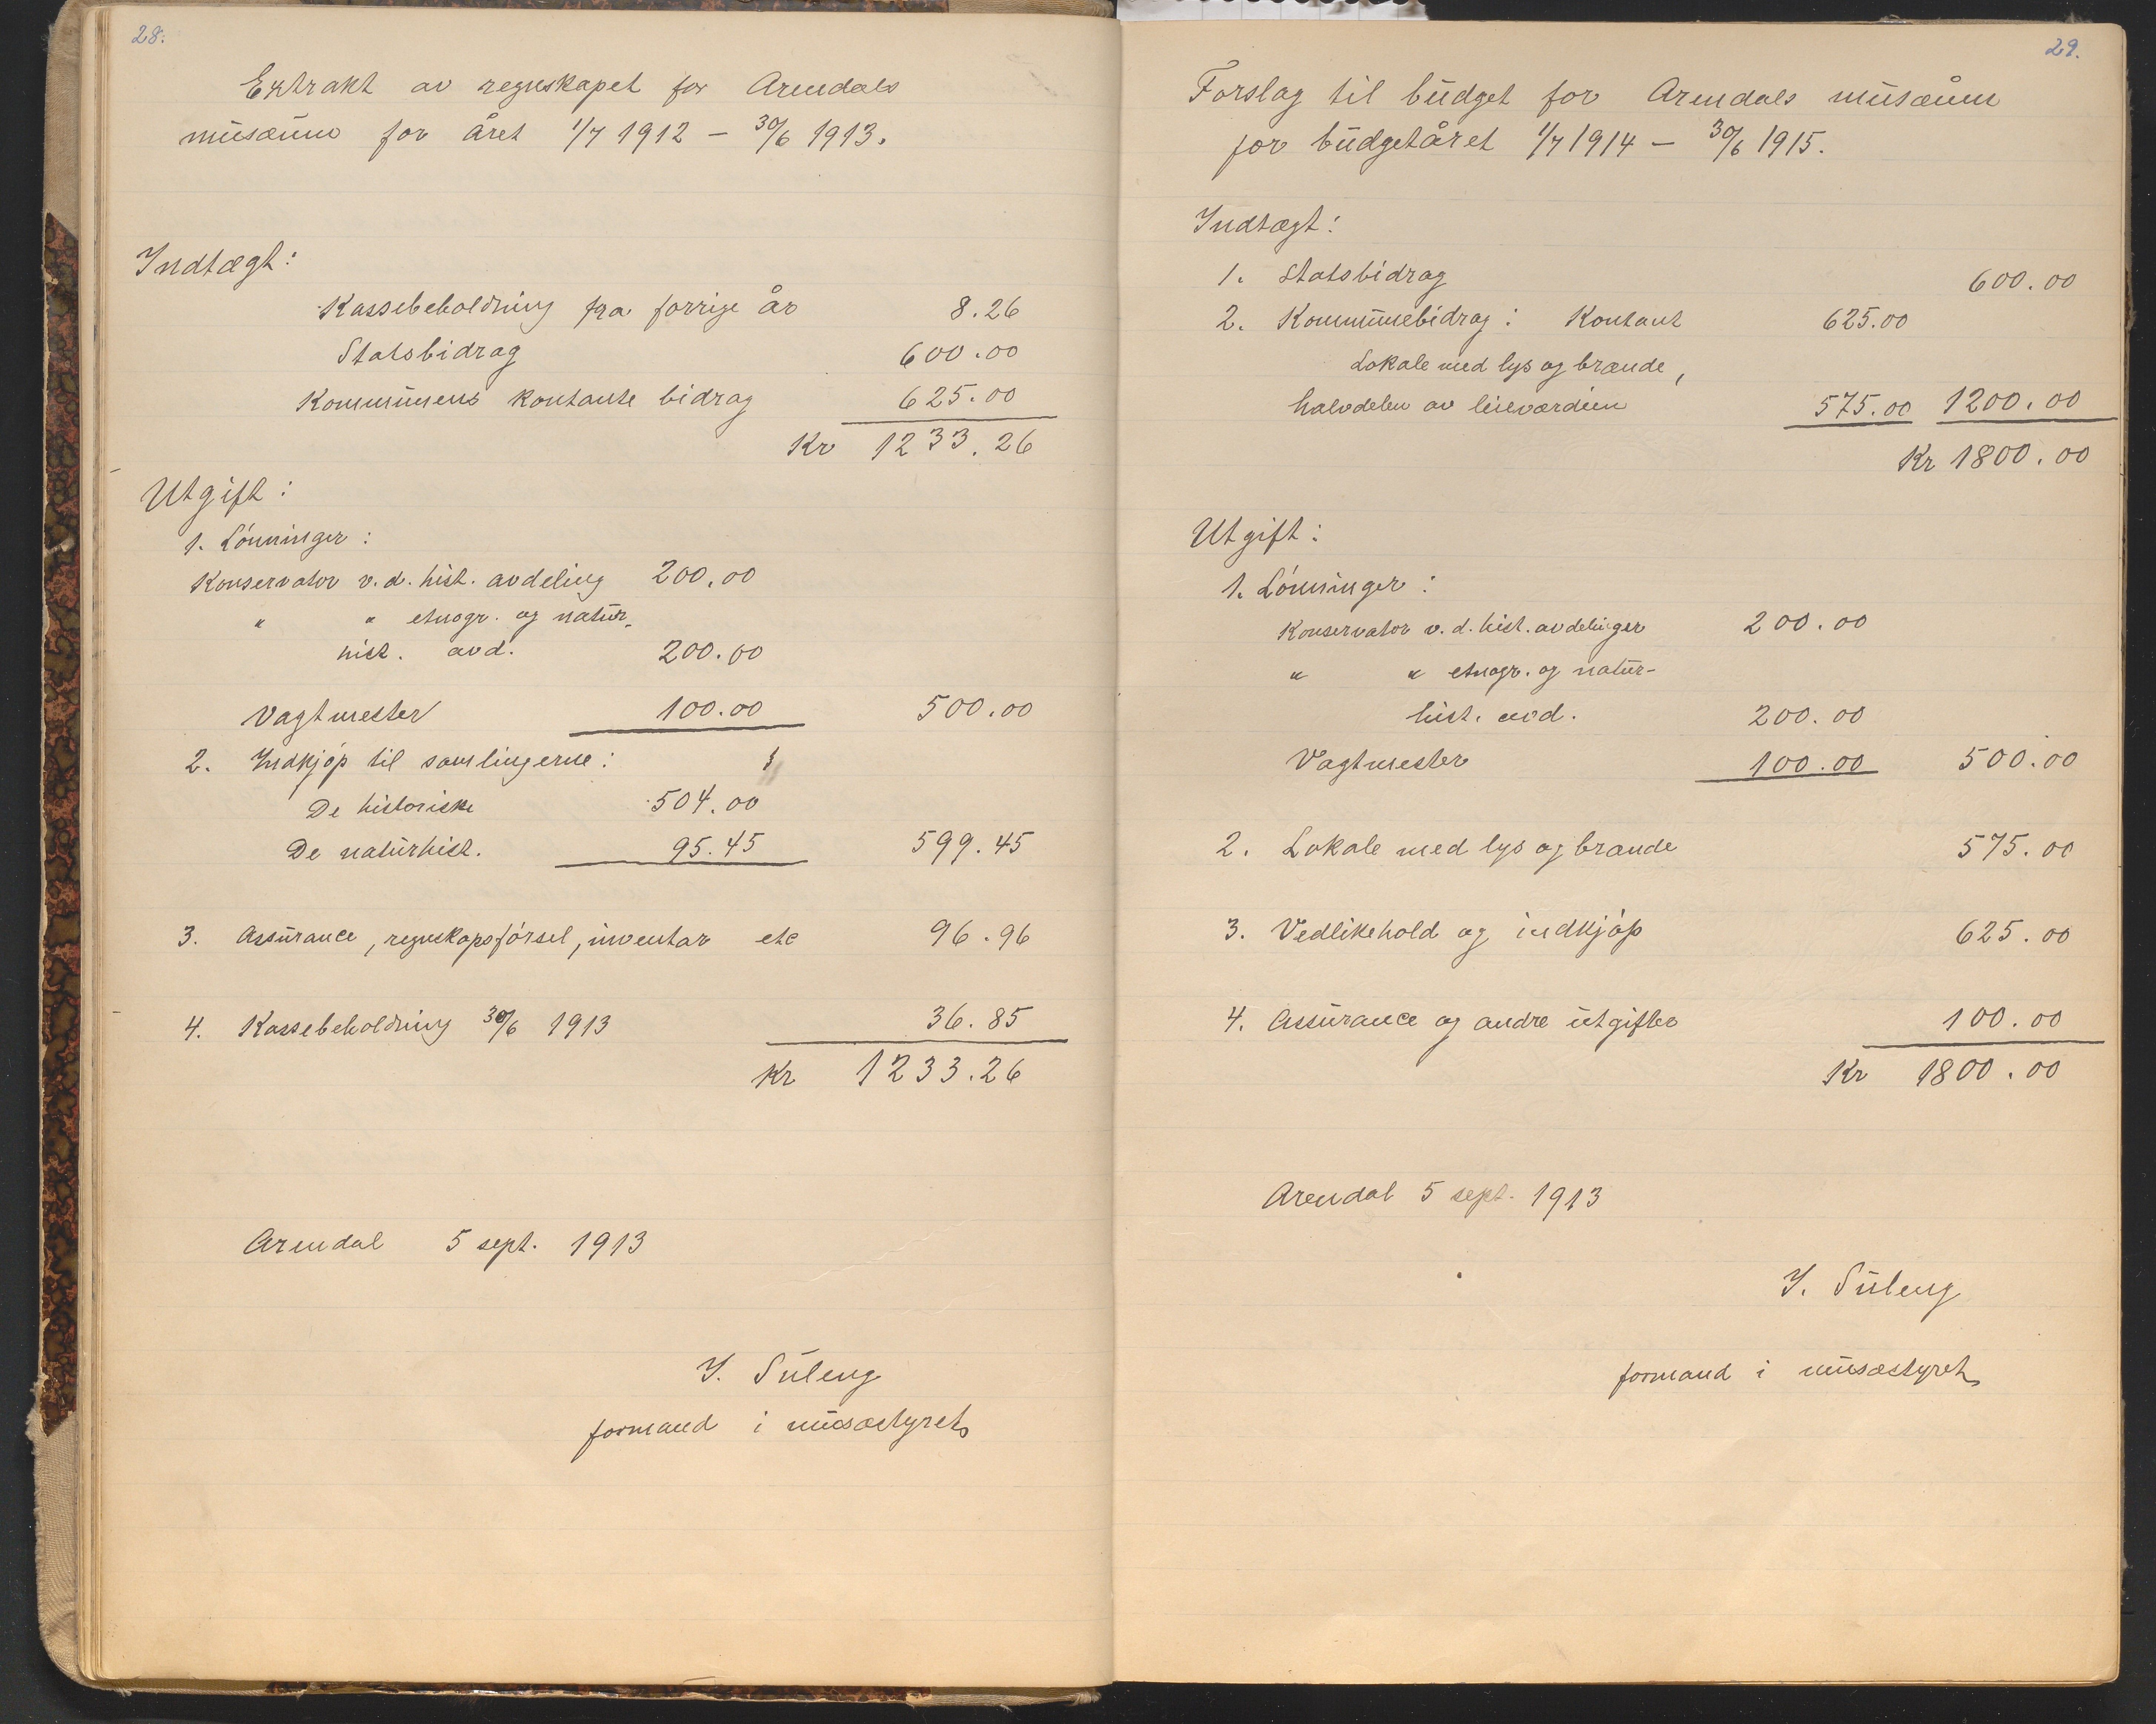 28.
Extrakt av regnskapet for Arendals
musæum for året 1/7 1912 – 30/6 1913.
Indtægt:
Kassebeholdning fra forrige år 8.26
Statsbidrag 600.00
Kommunens kontante bidrag 625.00
Kr 1233.26
Utgift:
1. Lónninger:
Konservator v. d. hist. avdeling 200.00
" " etnogr. og natur-
hist. avd. 200.00
Vagtmester 100.00 500.00
2. Indkjóp til samlingerne:
De historiske 504.00
De naturhist. 95.45 599.45
3. Assurance, regnskapsfórsel, inventar etc 96.96
4. Kassebeholdning 30/6 1913 36.85
Kr 1233.26
Arendal 5 sept. 1913
I. Suleng
formand i musæstyret
29.
Forslag til budget for Arendals musæum
for budgetåret 1/7 1914 – 30/6 1915.
Indtægt:
1. Statsbidrag 600.00
2. Kommunebidrag: Kontant 625.00
Lokale med lys og brænde,
halvdelen av leieværdien 575.00 1200.00
Kr 1800.00
Utgift:
1. Lónninger:
Konservator v. d. hist. avdelinger 200.00
" " etnogr. og natur-
hist. avd. 200.00
Vagtmester 100.00 500.00
2. Lokale med lys og brænde 575.00
3. Vedlikehold og indkjóp 625.00
4. Assurance og andre utgifter 100.00
Kr 1800.00
Arendal 5 sept. 1913
I. Suleng
formand i musæstyret